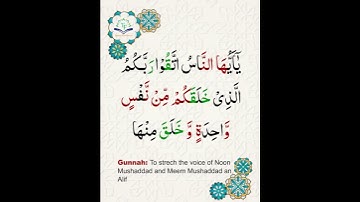 يٰۤاَيُّهَا النَّاسُ اتَّقُوْا رَبَّكُمُ
الَّذِىْ خَلَقَكُمْ مِّنْ نَّفْسٍ
وَّاحِدَةٍ وَّ خَلَقَ مِنْهَا
Gunnah: To strech the voice of Noon
Mushaddad and Meem Mushaddad an
Alif